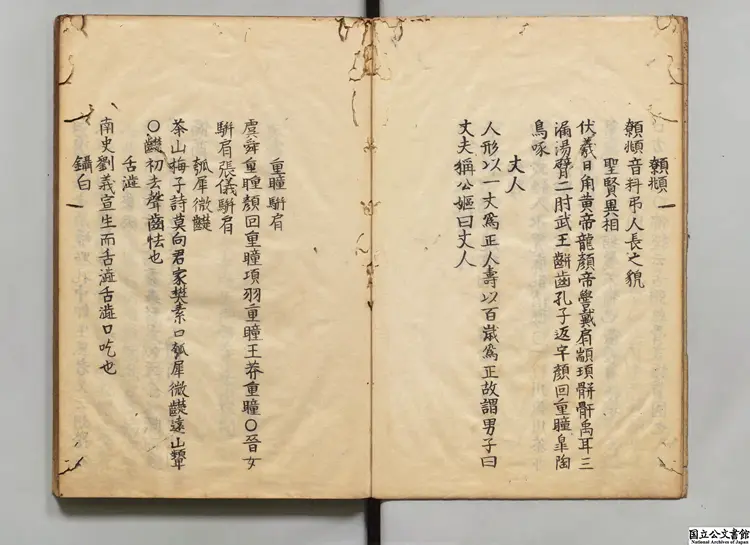 顤𩑔
顤𩑔音料弔人長之貌
聖賢異相
伏羲日角黄帝龍顔帝嚳戴肩顓頊骿骭禹耳三
漏湯臂二肘武王齞齒孔子返宇顔回重瞳皐陶
鳥喙
丈人
人形以一丈爲正人壽以百歲爲正故謂男子曰
丈夫稱公嫗曰丈人
重瞳駢肩
虞舜重瞳顔回重瞳項羽重瞳王莽重瞳〇晉文
駢肩張儀駢肩
瓠犀微齼
茶山梅子詩莫向君家樊素口瓠犀微齼遠山顰
〇齼初去聲齒怯也
舌澁
南史劉義宣生而舌澁舌澁口吃也
鑷白
国立公文書館
National Archives of Japan